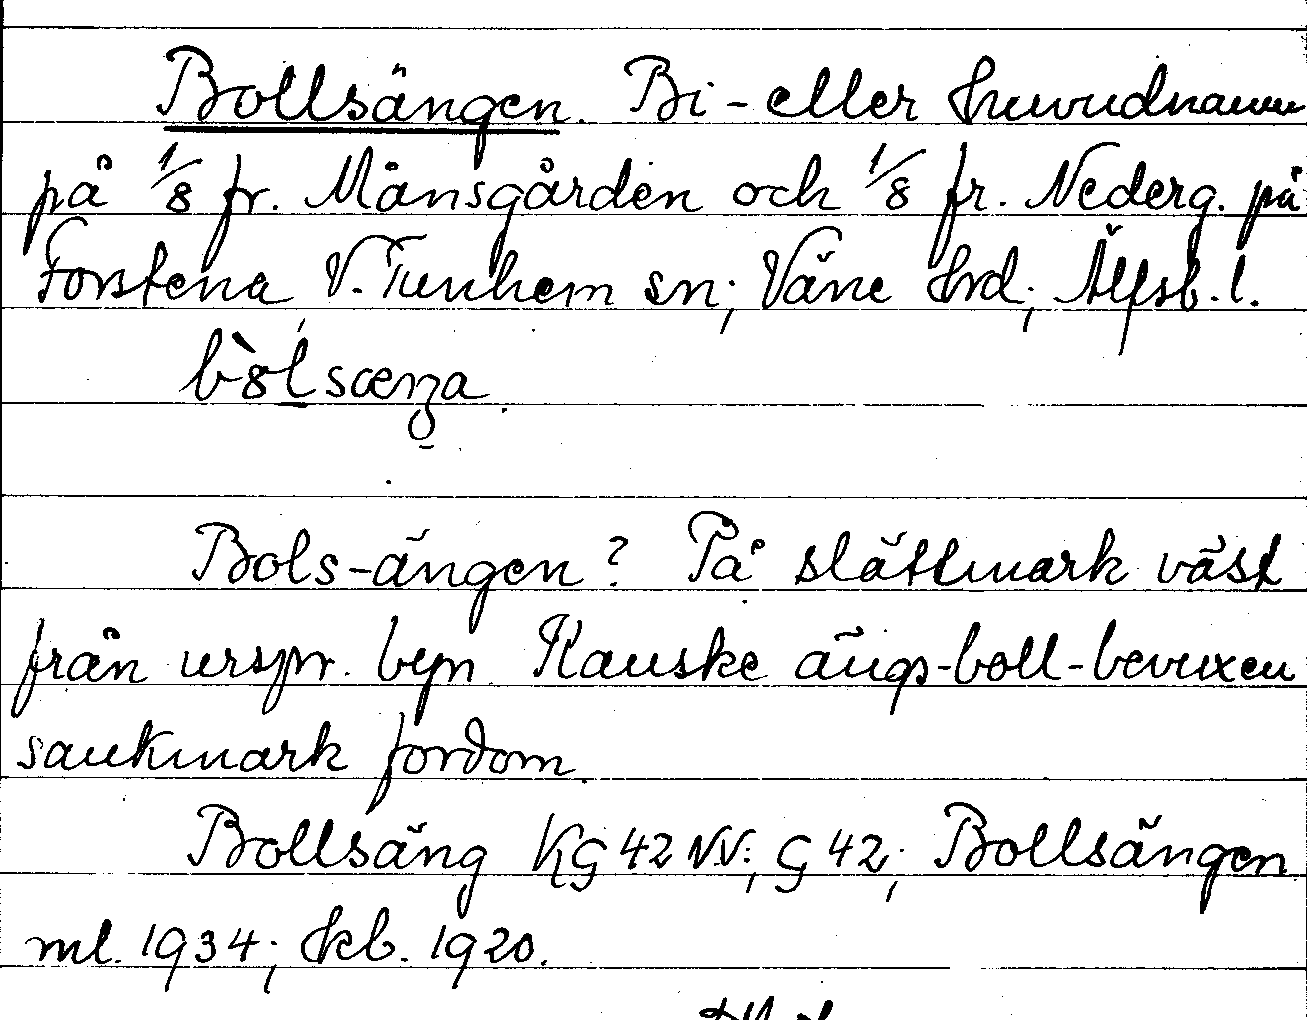 Bollsängen. Bi- eller huvudnamn
på 1/8 fr. Månsgården och 1/8 fr. Nederg. på
Forstena V. Tunhem sn; Väne hrd; Älfsb. l.
Bols-ängen? På slättmark väst
från urspr. byn. Kanske ängs-boll-bevuxen
sankmark fordom.
Bollsäng KG 42 NV; G 42; Bollsängen
ml. 1934; kb. 1920.